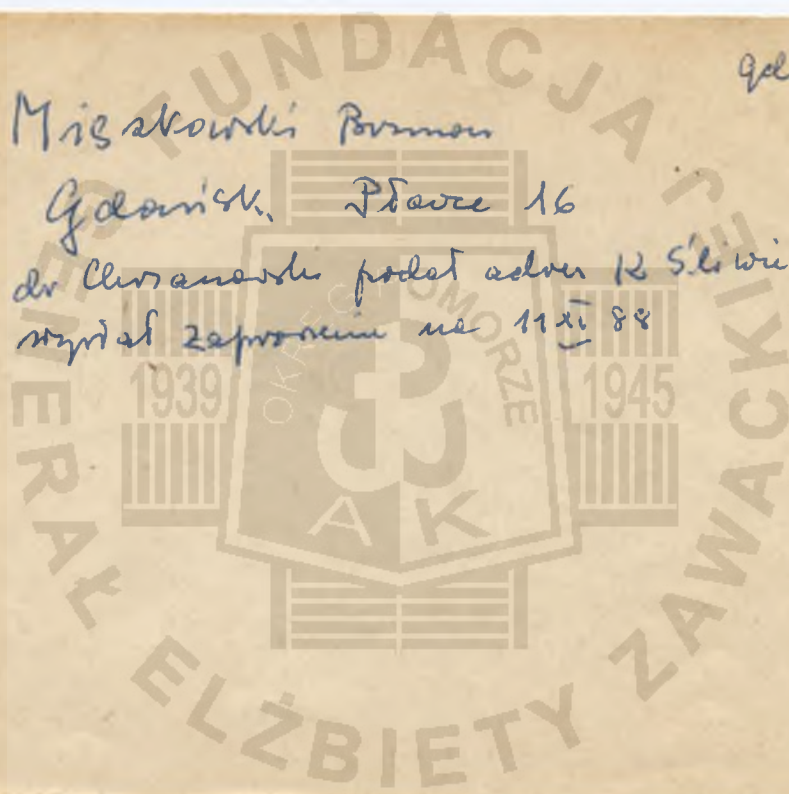 gd
Miszkowski
Gdańsk, Pławce 16
dr Chrzanowski podał adres K Śliwi
wysłał zaproszenie na 11 XI 88
FUNDACJA GENERAŁ ELŻBIETY ZAWACKIEJ
OKRĘG POMORZE
1939 1945
AK